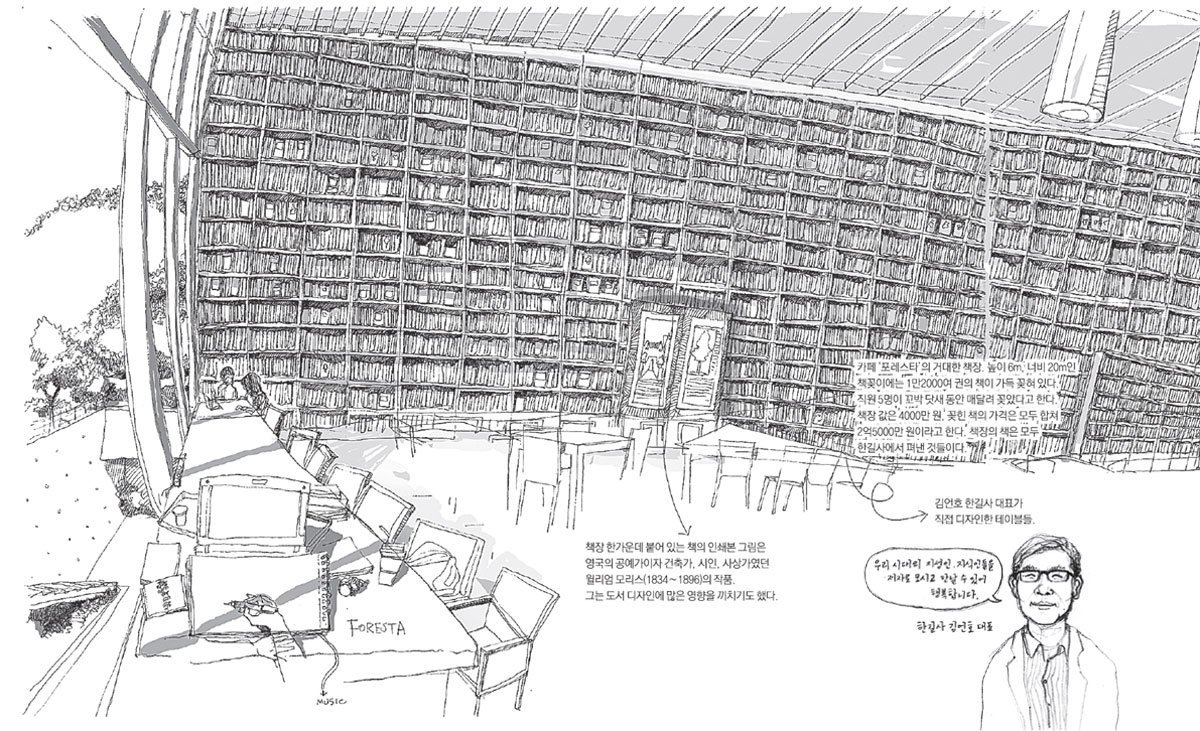 카페 '포레스타'의 거대한 책장. 높이 6m, 너비 20m인
책꽂이에는 1만2000여 권의 책이 가득 꽂혀 있다.
직원 5명이 꼬박 닷새 동안 매달려 꽂았다고 한다.
책장 값은 4000만 원, 꽂힌 책의 가격은 모두 합쳐
2억5000만 원이라고 한다. 책장의 책은 모두
한길사에서 펴낸 것들이다.
김언호 한길사 대표가
직접 디자인한 테이블들.
책장 한가운데 붙어 있는 책의 인쇄본 그림은
영국의 공예가이자 건축가, 시인, 사상가였던
윌리엄 모리스(1834~1896)의 작품.
그는 도서 디자인에 많은 영향을 끼치기도 했다.
우리 시대의 지성인, 지식인들을
저자로 모시고 만날 수 있어
행복합니다.
한길사 김언호 대표
FORESTA
MUSIC